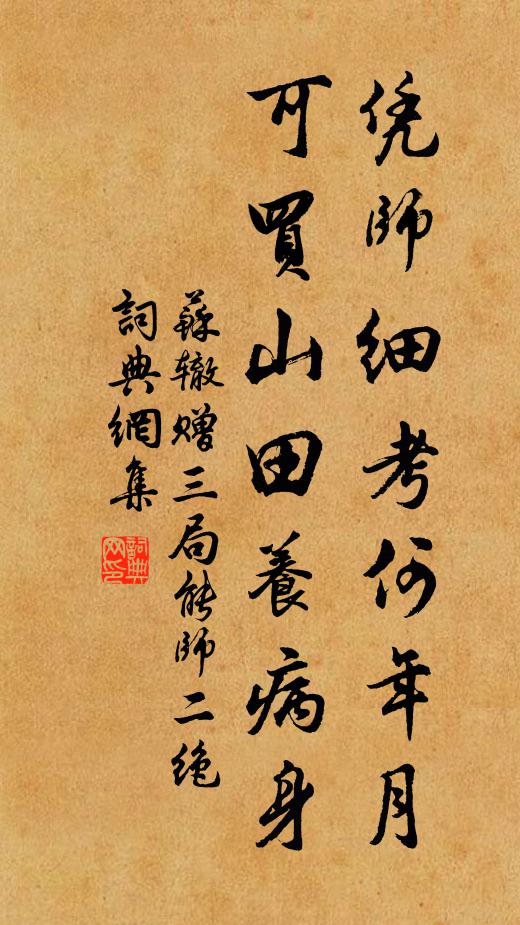 凭師细考何年月
可買山田養病身
蘇辙赠三局能師二绝
詞典網集
詞典网印